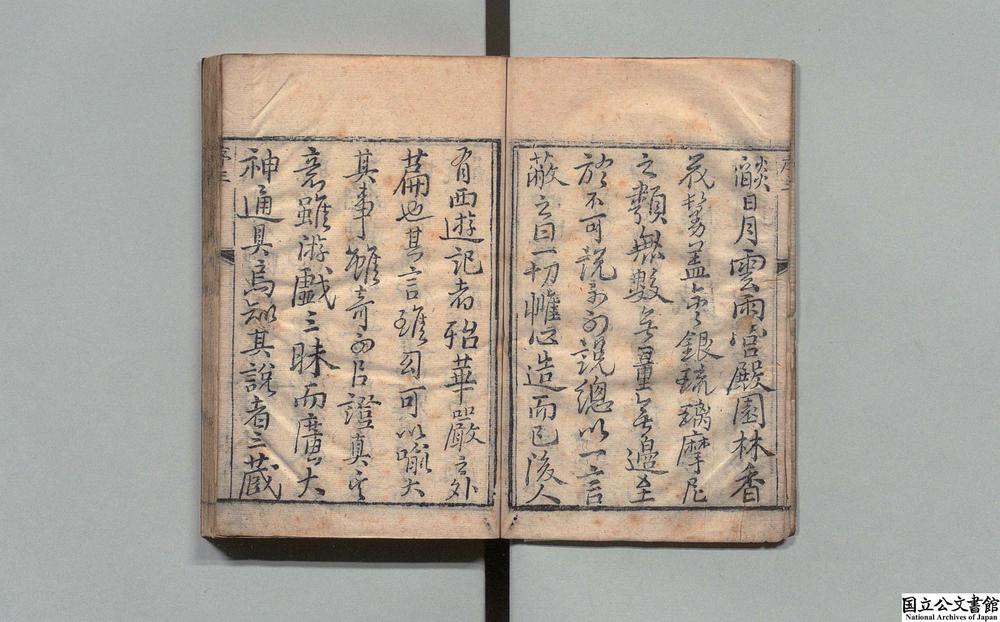 燄日月雲雨宮殿園林香
花鬘蓋金銀琉璃摩尼
之類無數無量無邊至
於不可說不可說總以一言
蔽之曰一切惟心造而已後人
有西遊記者殆華嚴之外
篇也其言雖幻可以喻大
其事雖奇可以證真其
意雖游戲三昧而廣大
神通具焉知其說者三藏
国立公文書館
National Archives of Japan